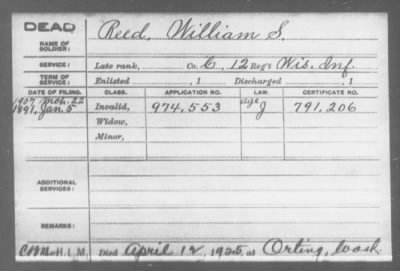 DEAD
NAME OF SOLDIER: Reed, William S.
SERVICE: Late rank, Co. C, 12 Reg't Wis. Inf.
TERM OF SERVICE: Enlisted , 1 Discharged , 1
DATE OF FILING. CLASS. APPLICATION NO. LAW. CERTIFICATE NO.
1907 Mch. 22 age
1891, Jan. 5 Invalid, 974,553 J 791,206
Widow,
Minor,
ADDITIONAL SERVICES:
REMARKS:
H.L.M. Died April 12, 1925, at Orting, Wash